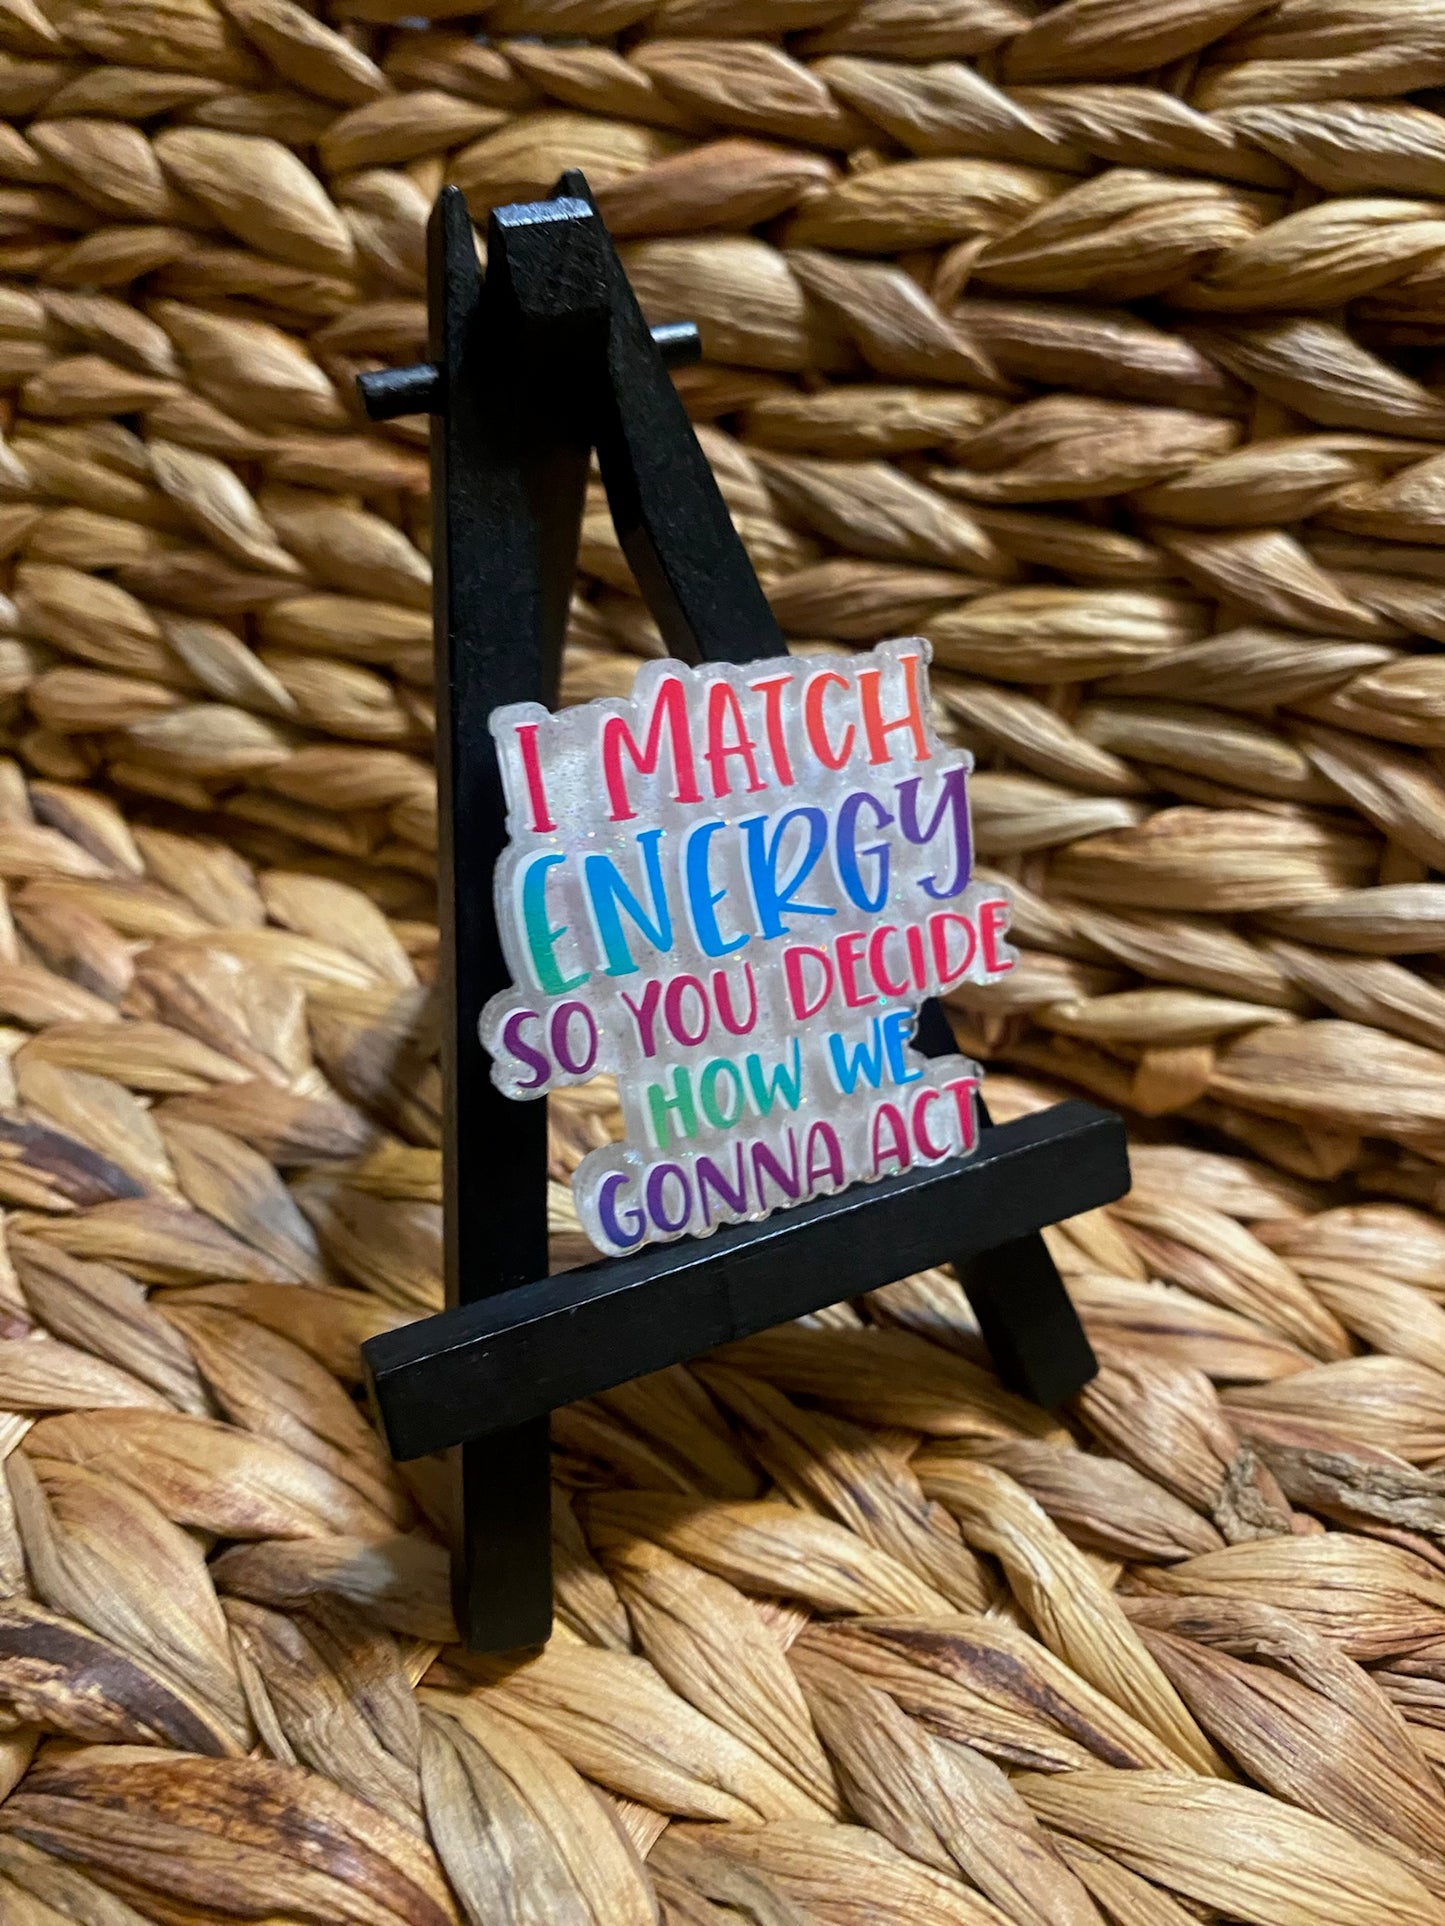 I MATCH
ENERGY
SO YOU DECIDE
HOW WE
GONNA ACT